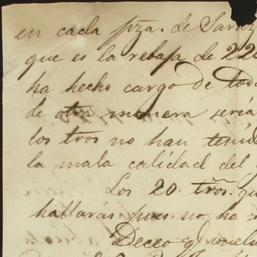 en cada pza. de Saraz
que es la rebaja de 22
ha hecho cargo de tod
de otra manera seria
los tros no han tenid
la mala calidad del
Los 20 tros. qu
hallarás pues no ha
Deceo q